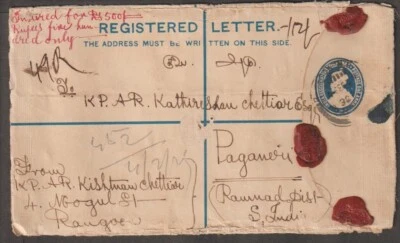 Insured for Rs 500/-
Rupees five hun
dred only
REGISTERED LETTER.
THE ADDRESS MUST BE WRITTEN ON THIS SIDE.
K.P.A.R. Kathiresan chettiar Esq
452
Paganeri
Ramnad Dist
S. India
From
KP.AR Kishtnan Chettiar
4. Mogul St
Rangoon